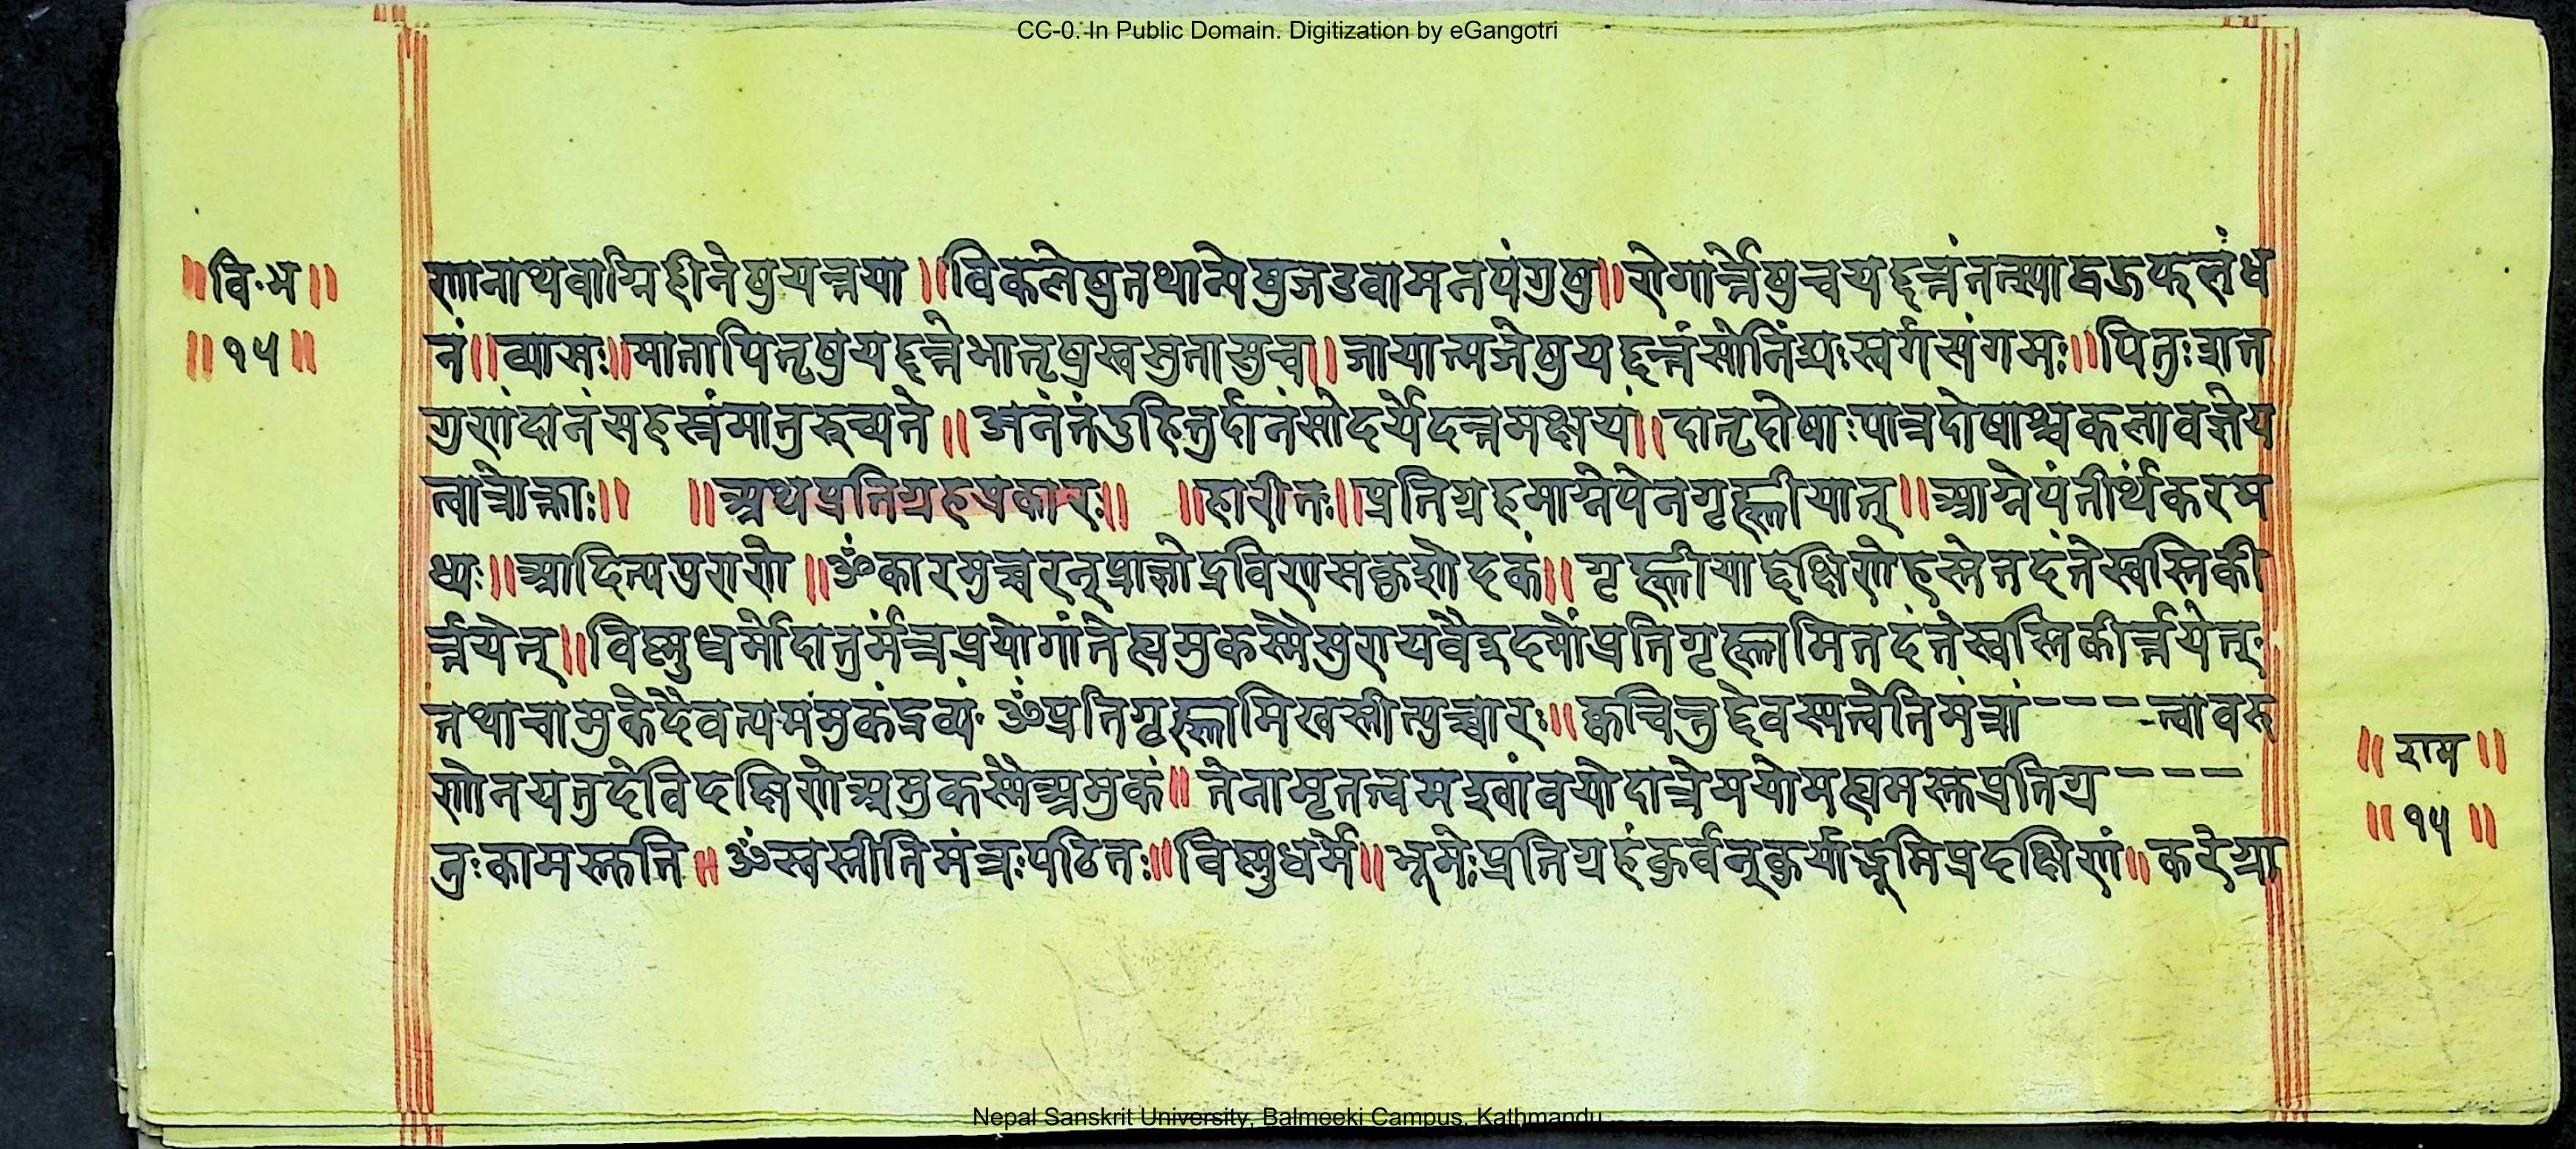 CC-0. In Public Domain. Digitization by eGangotri
॥वि॰भ॥
॥१५॥
णानाथवाग्निहीनेषुयत्नया॥विकलेषुतथान्येषुजडवामनपंगुषु॥रोगार्त्तेषुचयद्दत्तंतत्स्याद्बहुफलंध
नं॥व्यासः॥मातापितृषुयद्दत्तेभातृषुस्वसुतासुच॥जायात्मजेषुयद्दत्तंसोनिंद्यःस्वर्गसंगमः॥पितुःशत
गुणंदानंसहस्रंमातुरुच्यते॥अनंतंदुहितुर्दानंसोदर्येदत्तमक्षयं॥दातृदोषाःपात्रदोषाश्चकलावज्ञेय
त्वान्नोक्ताः॥ ॥अथप्रतिग्रहप्रकारः॥ ॥हारीतः॥प्रतिग्रहमाग्नेयेनगृह्णीयात्॥आग्नेयंतीर्थंकरम
ध्यः॥आदित्यपुराणे॥ॐकारमुच्चरन्प्राज्ञोद्रविणसकुशोदकं॥गृह्णीयाद्दक्षिणेहस्तेतदंतेस्वस्तिकी
र्त्तयेत्॥विष्णुधर्मोदातुर्मंत्रप्रयोगांतेह्यमुकस्मैसुरायवैइदमोंप्रतिगृह्णामितदंतेस्वस्तिकीर्त्तयेत्
तथाचामुकेदैवत्यमंमुकंद्रव्यं ॐप्रतिगृह्णामिस्वस्तीत्युच्चारः॥क्वचित्तुदेवस्यत्वेतिमंत्रां---त्वावरु
णोनयतुदेविदक्षिणेअमुकस्मैअमुकं॥तेनामृतत्वमश्वांवयोदात्रेमयोमह्यमस्तुप्रतिग्र---
तुःकामस्तुति॥ॐस्वस्तीतिमंत्रःपठितः॥विष्णुधर्मे॥भूमेःप्रतिग्रहंकुर्वन्कुर्याद्भूमिप्रदक्षिणं॥करेग्रा
॥राम॥
॥१५॥
Nepal Sanskrit University, Balmeeki Campus, Kathmandu